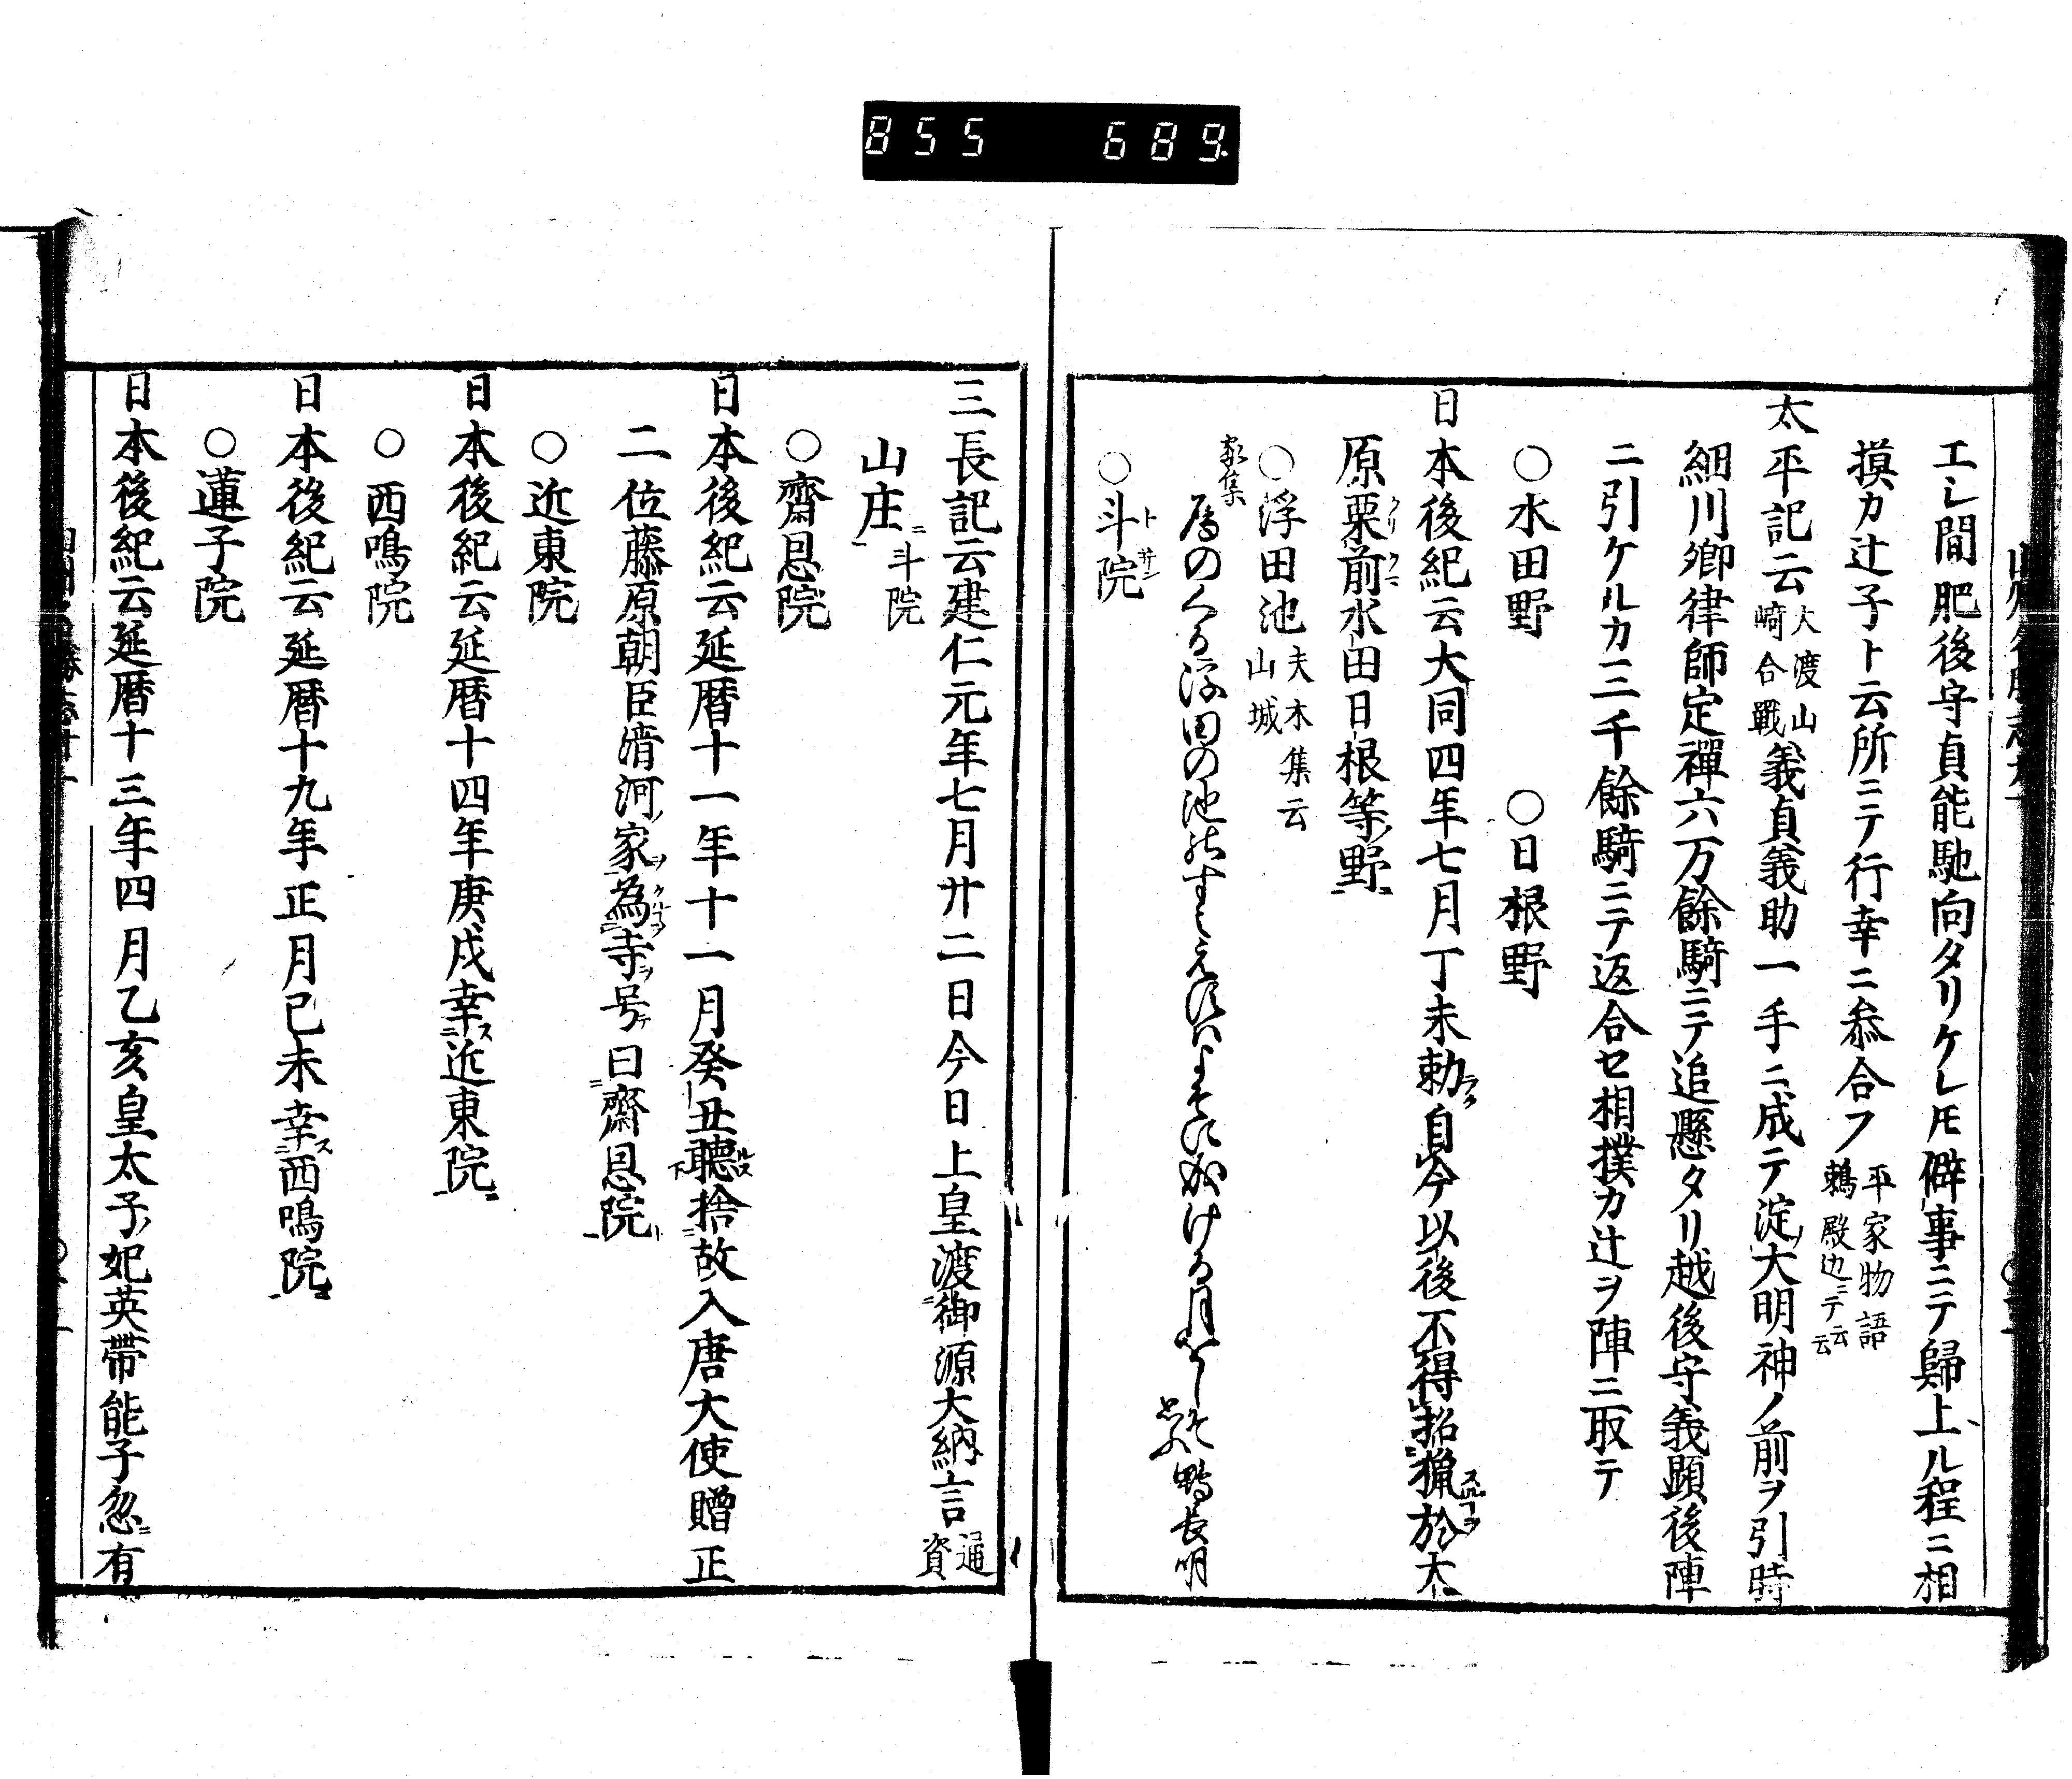 855 689
エシ間肥後守貞能馳向タリケレ𪜈僻事ニテ歸上ル程ニ相
摸カ辻子ト云所ニテ行幸ニ叅合フ平家物語鵜殿辺ニテ云云
太平記云大渡山崎合戰義貞義助一手ニ成テ淀ノ大明神ノ前ヲ引時
細川卿律師定禪六万餘騎ニテ追懸タリ越後守義顕後陣
ニ引ケルカ三千餘騎ニテ返合セ相撲カ辻ヲ陣ニ取テ
○水田野　○日根野
日本後紀云大同四年七月丁未勅自今以後不得㹦獵於大
原栗前水田日根等野
○浮田池夫木集云山城
家集
鴨長明
○斗院
三長記云建仁元年七月廿二日今日上皇渡御源大納言通資
山庄斗院
○齋恩院
日本後紀云延暦十一年十一月癸丑聽捨故入唐大使贈正
二位藤原朝臣清河家為寺号曰齋恩院
○近東院
日本後紀云延暦十四年庚戌幸近東院
○西鳴院
日本後紀云延暦十九年正月己未幸西鳴院
○蓮子院
日本後紀云延暦十三年四月乙亥皇太子妃英帶能子忽有